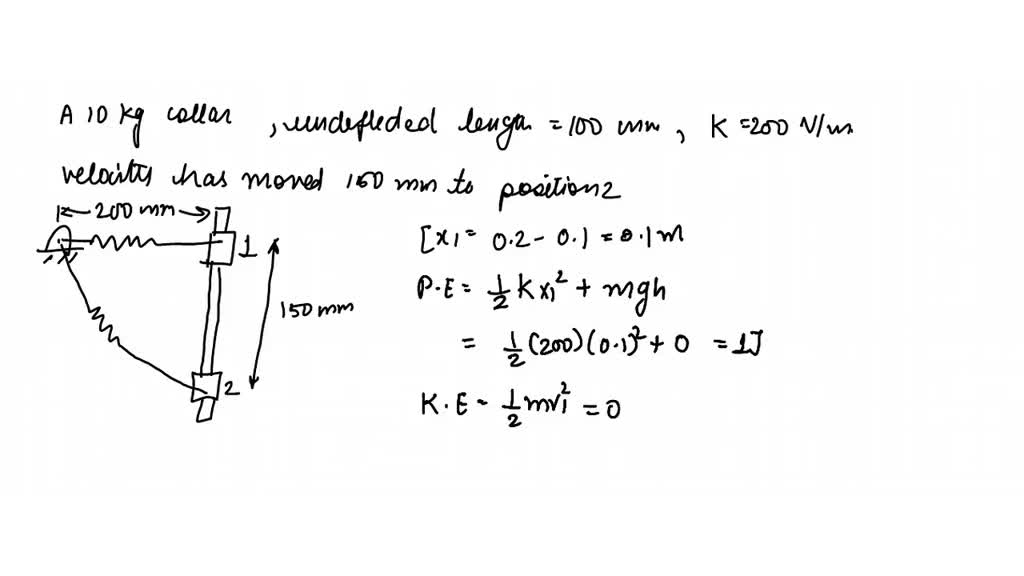 A 10 kg collar , undefleded lengh = 100 mm , K = 200 N/m
velocity has moved 150 mm to position 2
200 mm
1
150 mm
2
[x₁ = 0.2 - 0.1 = 0.1 m
P.E = 1/2 K x₁² + mgh
= 1/2 (200) (0.1)² + 0 = 1J
K.E = 1/2 mv₁² = 0